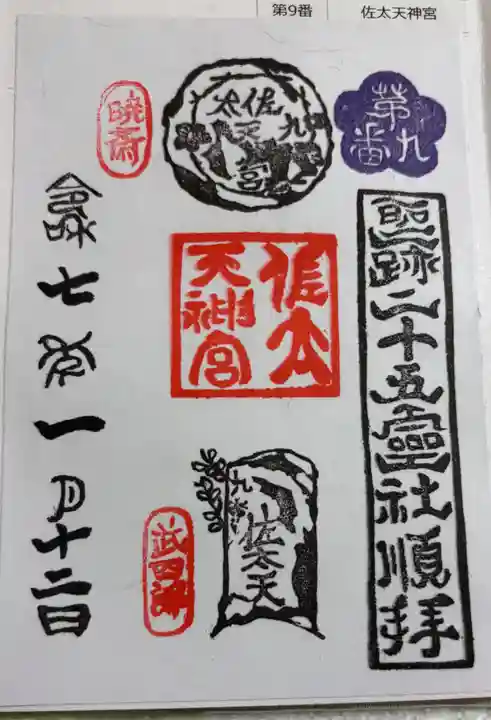 第9番
佐太天神宮
第九番
聖跡二十五霊社順拝
佐太天宮
九
佐太
天神宮
九
佐太天
暁斎
武四郎
令和七年一月十二日